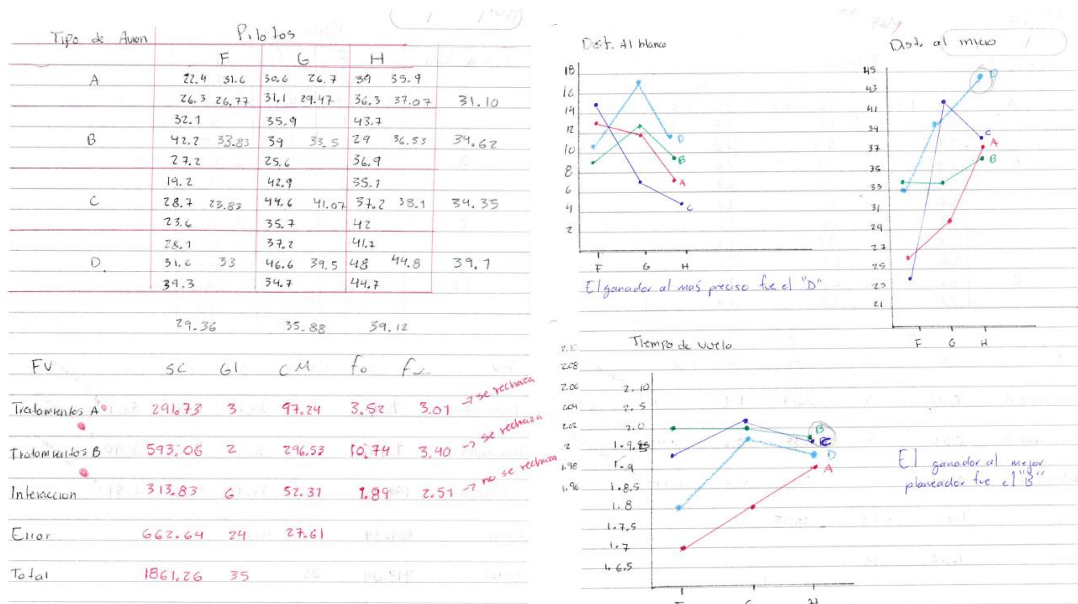 Tipo de Avion Pilotos
F G H
A 22.4 31.6 30.6 26.7 39 35.9
26.3 26.77 31.1 29.47 36.3 37.07 31.10
32.1 35.9 43.7
B 42.2 33.83 39 33.5 29 36.53 34.62
27.2 25.6 36.9
19.2 42.9 35.1
C 28.7 23.83 44.6 41.07 37.2 38.1 34.35
23.6 35.7 42
28.1 37.2 41.2
D. 31.6 33 46.6 39.5 48 44.8 39.1
39.3 34.7 44.7
29.36 35.88 39.12
FV SC Gl CM fo
Tratamientos A 291.73 3 97.24 3.52 3.01 → se rechaza
Tratamientos B 593.06 2 296.53 10.74 3.40 → se rechaza
Interaccion 313.83 6 52.31 1.89 2.51 → no se rechaza
Error 662.64 24 27.61
Total 1861.26 35
Dist. Al blanco
18
16
14
12
10
8
6
4
2
D
B
A
C
F G H
El ganador al mas preciso fue el "D"
Dist. al inicio
45
43
41
39
37
35
31
29
27
25
23
21
D
C
A
B
F G H
Tiempo de vuelo
2.10
2.08
2.06
2.04
2.02
2
1.98
1.96
2.10
2.5
2.0
1.9.5
1.9
1.8.5
1.8
1.7.5
1.7
1.6.5
B
C
D
A
F G H
El ganador al mejor
planeador fue el "B"